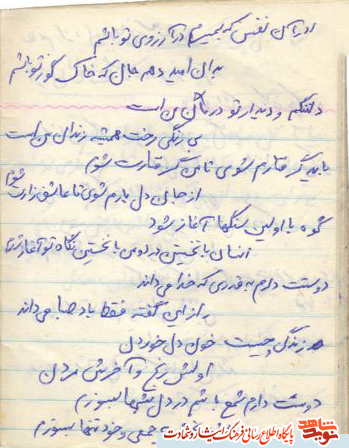 در آن نفس که بمیرم در آرزوی تو باشم
بدان امید دهم جان که خاک کوی تو باشم
دلتنگم و دیدار تو درمان من است
بی رنگ رخت همیشه زندان من است
یا بیا گرفتارم شوی تا من گرفتارت شوم
از جان دل یارم شوی تا عاشق زارت شوم
کوه با اولین سنگها آغاز شود
انسان با نخستین درد من با نخستین نگاه تو آغاز شدم
دوستت دارم به قدری که خدا می داند
راز این گفته فقط باد صبا می داند
زندگی چیست خون دل خوردن
اولش رنج و آخرش مردن
دوست دارم شمع باشم در دل شبها بسوزم
جمعی و خود تنها بسوزم
نوید شاهد
پایگاه اطلاع رسانی فرهنگ ایثار و شهادت